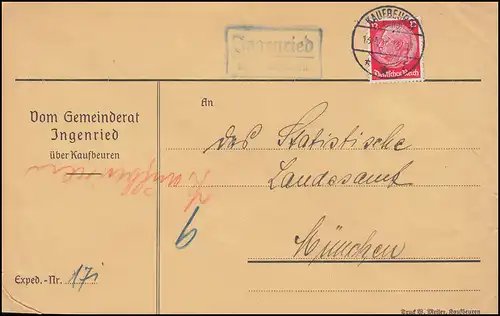 Ingenried
KAUFBEUREN
Deutsches Reich
Vom Gemeinderat
Ingenried
über Kaufbeuren
An
das Statistische
Landesamt
München
Kaufbeuren
9
Exped.-Nr. 17i
Druck W. Meiler, Kaufbeuren